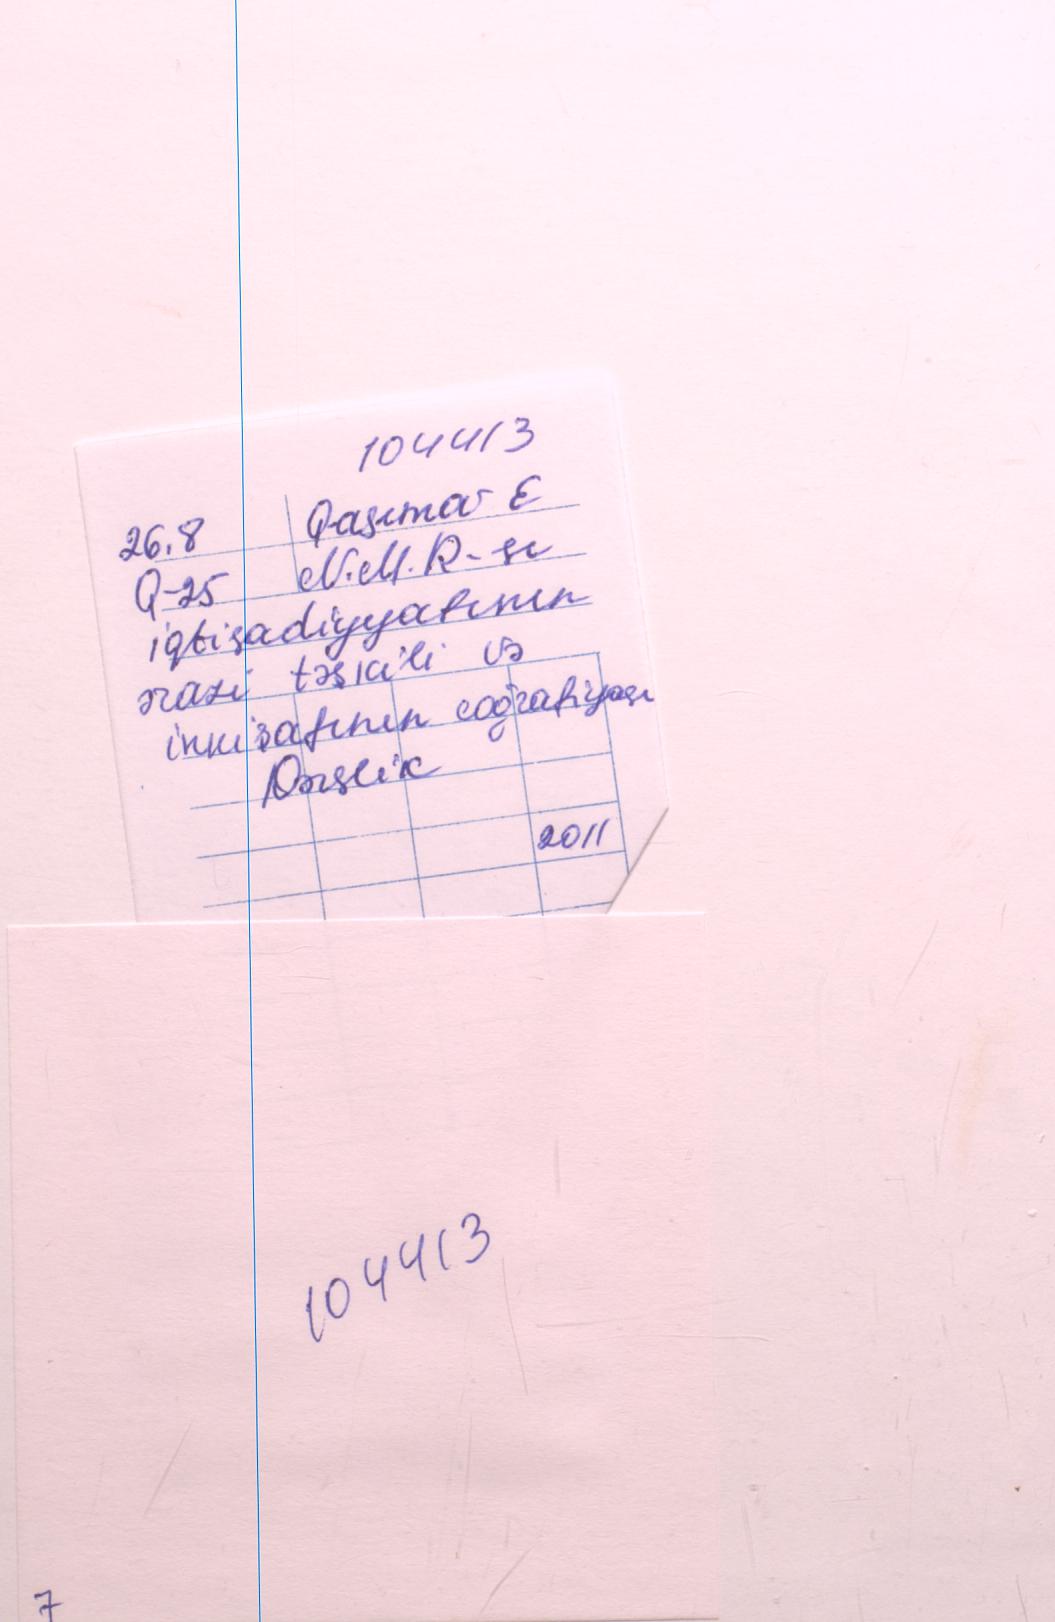 104413
26.8 Qasımov E
Q-25 N.M.R-sı
iqtisadiyyatının
ərazi təşkili və
inkişafının coğrafiyası
Dərslik
2011
104413
7